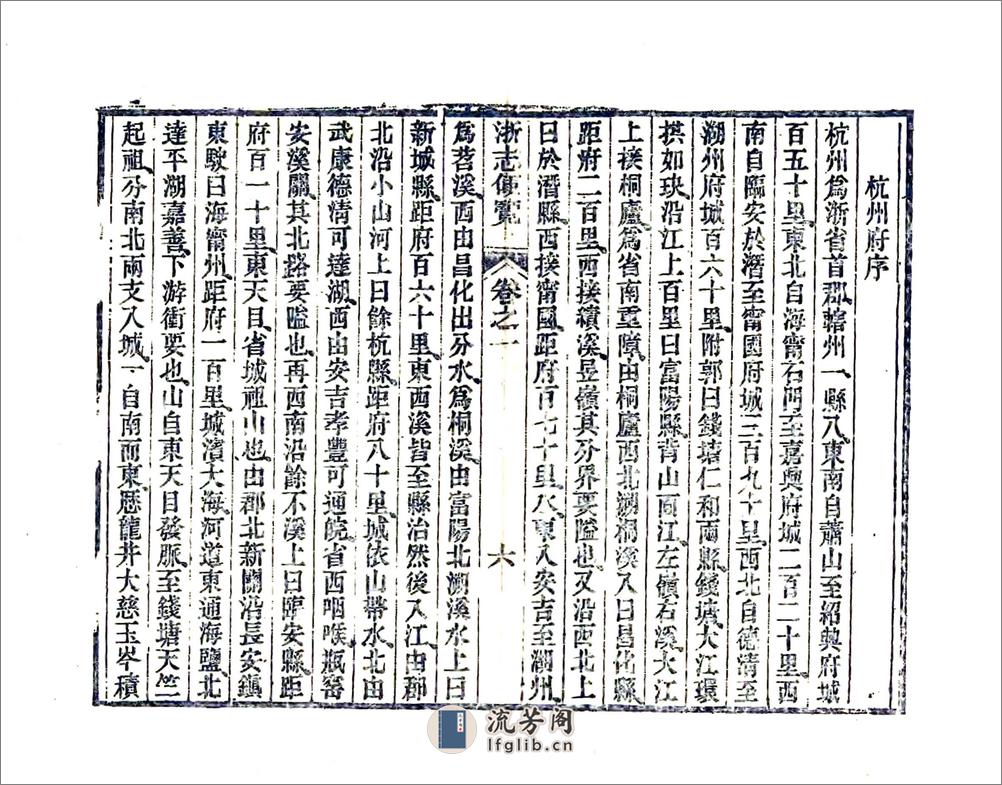 杭州府序
杭州爲浙省首郡轄州一縣八東南自蕭山至紹興府城
百五十里東北自海甯石門至嘉興府城二百二十里西
南自臨安於潛至甯國府城三百九十里西北自德清至
湖州府城百六十里附郭曰錢塘仁和兩縣錢塘大江環
拱如玦沿江上百里曰富陽縣背山面江左嶺右溪大江
上接桐廬爲省南重障由桐廬西北溯桐溪入曰昌化縣
距府二百里西接績溪昱嶺其分界要隘也又沿西北上
曰於潛縣西接甯國距府百七十里水東入安吉至湖州
浙志便覽 卷之一 六
爲苕溪西由昌化出分水爲桐溪由富陽北溯溪水上曰
新城縣距府百六十里東西溪皆至縣治然後入江由郡
北沿小山河上曰餘杭縣距府八十里城依山帶水北由
武康德清可達湖西由安吉孝豐可通皖省西咽喉瓶窰
安溪關其北路要隘也再西南沿餘不溪上曰臨安縣距
府百一十里東天目省城祖山也由郡北新關沿長安鎮
東駛曰海甯州距府一百里城濱大海河道東通海鹽北
達平湖嘉善下游衝要也山自東天目發脈至錢塘天竺
起祖分南北兩支入城一自南而東歷龍井大慈玉岑積
流芳阁
lfglib.cn